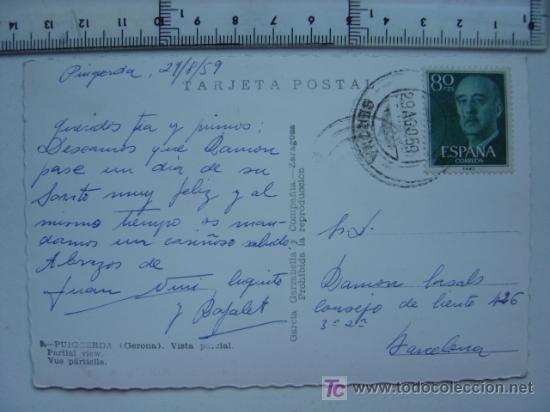 14 13 12 11 10 9 8 7 6 5 4
Puigcerda, 29/8/59
TARJETA POSTAL
GERONA
29 AGO 59
80 CTS
ESPAÑA
CORREOS
Queridos tia y primos:
Deseamos que Ramon
pase un dia de su
Santo muy feliz y al
mismo tiempo os man-
damos un cariñoso saludo
Abrazos de
Juan Nuri Augusto
y
García Garrabella y Compañía.—Zaragoza
Prohibida la reproducción
Sr. D.
Ramon Casals
Consejo de Ciento 426
3º 2ª
Barcelona
PUIGCERDA (Gerona). Vista parcial.
Partial view.
Vue partielle.
todocoleccion